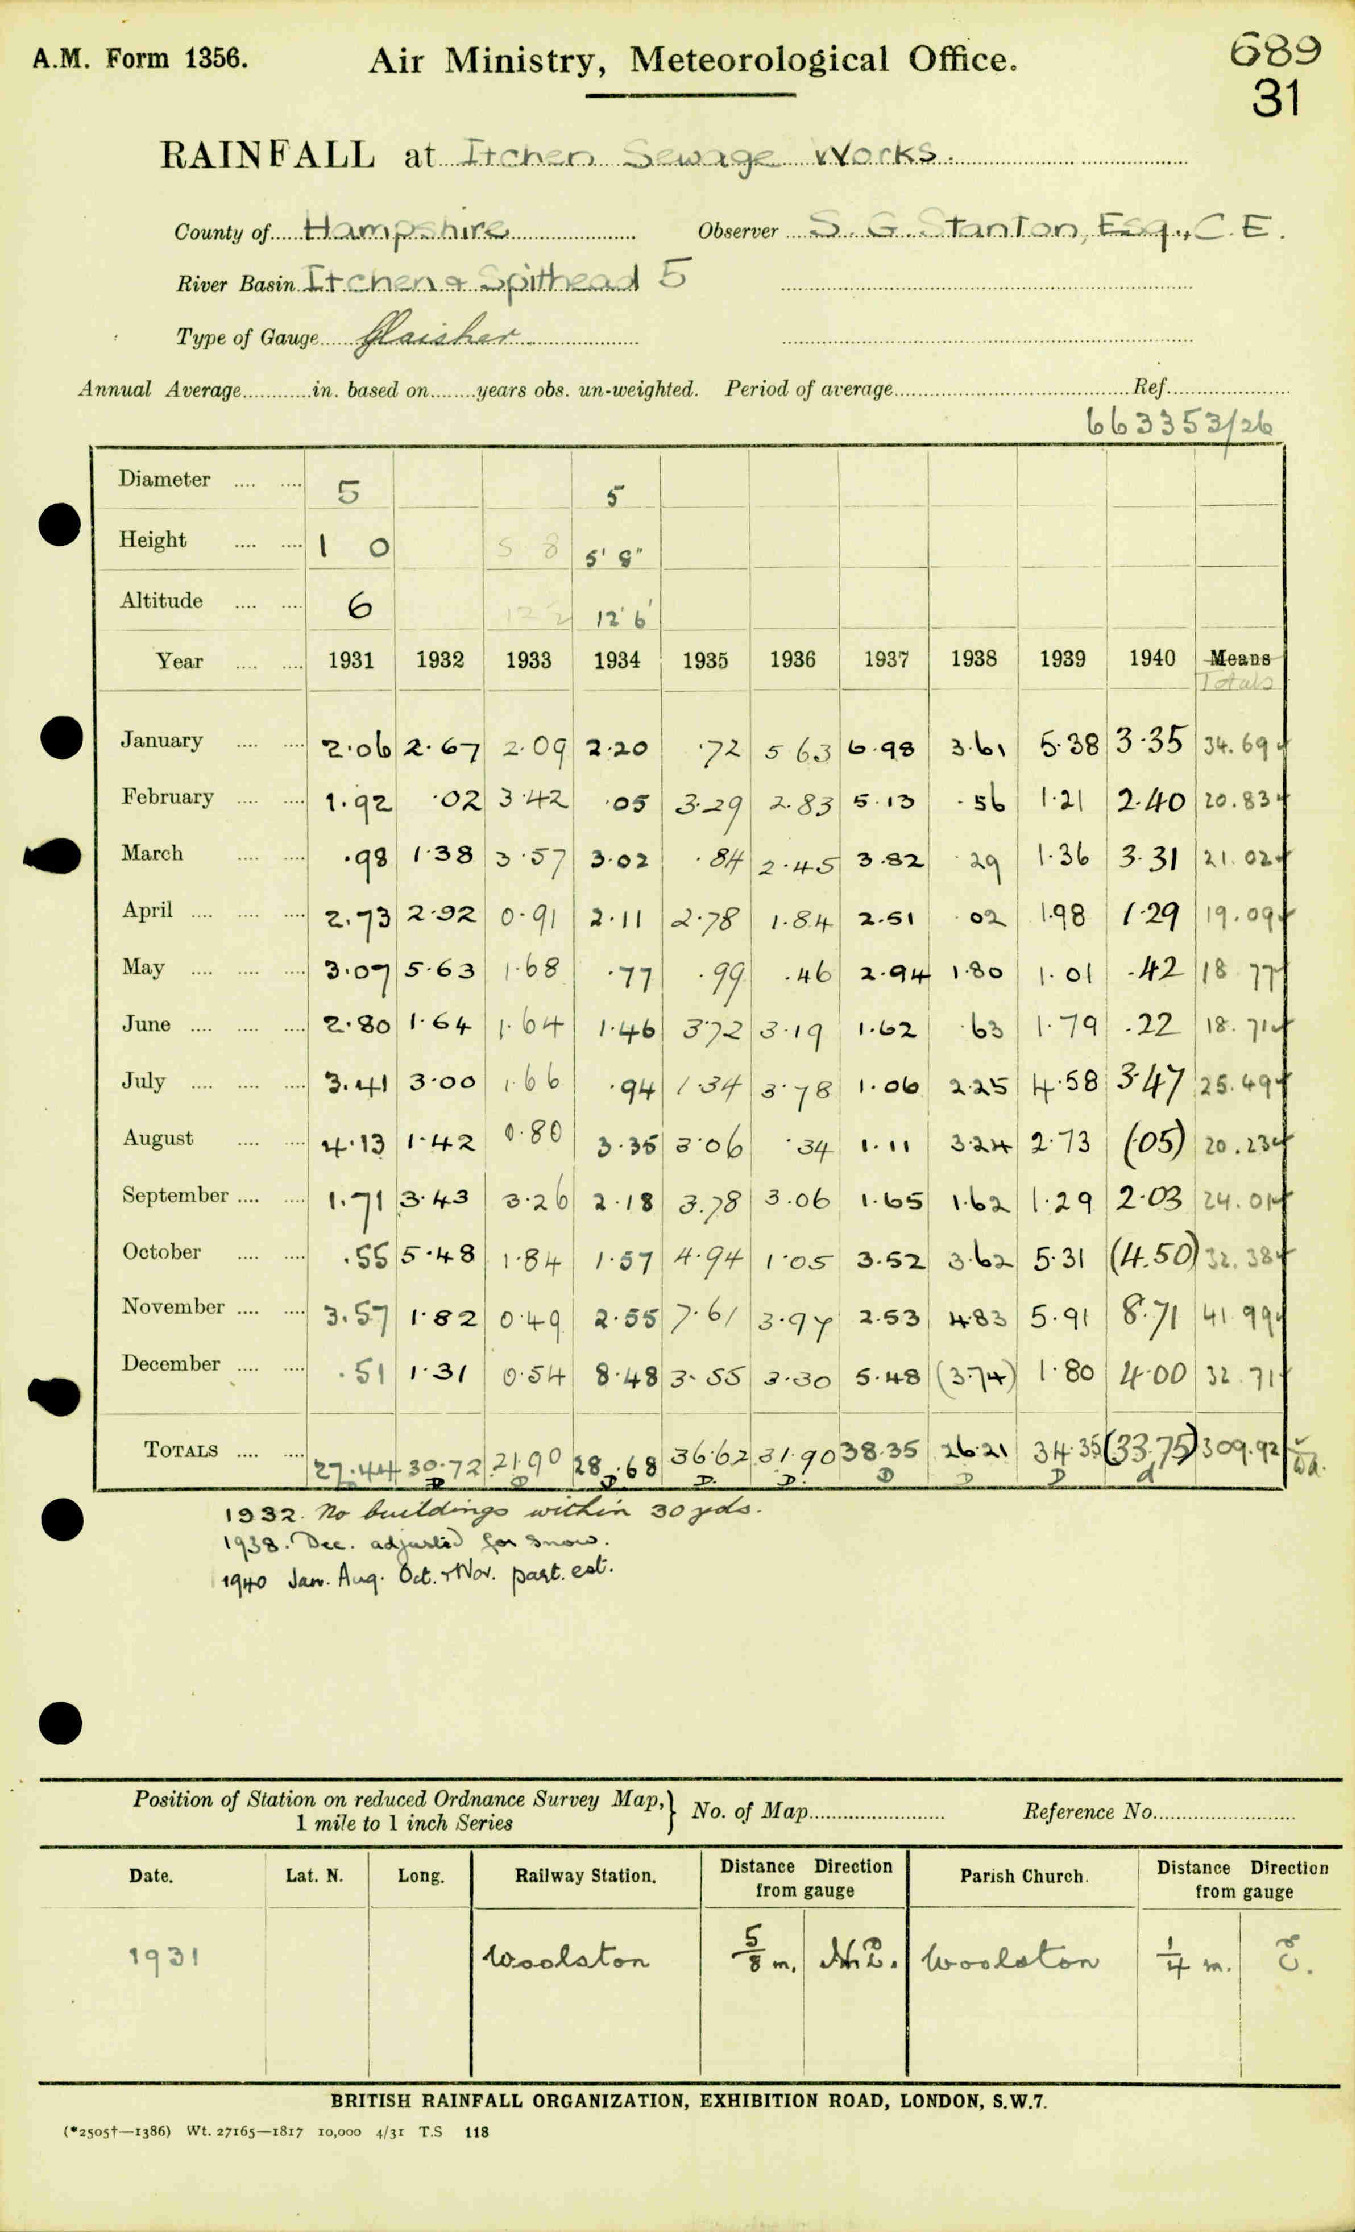 A.M. Form 1356.
Air Ministry, Meteorological Office.
689
31
RAINFALL at Itchen Sewage Works.
County of Hampshire Observer S. G. Stanton, Esq., C.E.
River Basin Itchen & Spithead 5
Type of Gauge Glaisher
Annual Average in. based on years obs. un-weighted. Period of average Ref.
663353/26
Diameter 5 5
Height 1 0 5 8 5' 8"
Altitude 6 12' 6'
Year 1931 1932 1933 1934 1935 1936 1937 1938 1939 1940 Means
Totals
January 2.06 2.67 2.09 2.20 .72 5.63 6.98 3.61 5.38 3.35 34.69
February 1.92 .02 3.42 .05 3.29 2.83 5.13 .56 1.21 2.40 20.83
March .98 1.38 3.57 3.02 .84 2.45 3.82 .29 1.36 3.31 21.02
April 2.73 2.92 0.91 2.11 2.78 1.84 2.51 .02 1.98 1.29 19.09
May 3.07 5.63 1.68 .77 .99 .46 2.94 1.80 1.01 .42 18.77
June 2.80 1.64 1.64 1.46 3.72 3.19 1.62 .63 1.79 .22 18.71
July 3.41 3.00 1.66 .94 1.34 3.78 1.06 2.25 4.58 3.47 25.49
August 4.13 1.42 0.80 3.35 3.06 .34 1.11 3.24 2.73 (.05) 20.23
September 1.71 3.43 3.26 2.18 3.78 3.06 1.65 1.62 1.29 2.03 24.01
October .55 5.48 1.84 1.57 4.94 1.05 3.52 3.62 5.31 (4.50) 32.38
November 3.57 1.82 0.49 2.55 7.61 3.97 2.53 4.83 5.91 8.71 41.99
December .51 1.31 0.54 8.48 3.55 3.30 5.48 (3.74) 1.80 4.00 32.71
TOTALS 27.44 30.72 21.90 28.68 36.62 31.90 38.35 26.21 34.35 (33.75) 309.92
D D D D D D D D d
1932. No buildings within 30 yds.
1938. Dec. adjusted for snow.
1940 Jan. Aug. Oct. + Nov. part. est.
Position of Station on reduced Ordnance Survey Map, 1 mile to 1 inch Series } No. of Map Reference No.
Date. Lat. N. Long. Railway Station. Distance Direction from gauge Parish Church. Distance Direction from gauge
1931 Woolston 5/8 m. N.E. Woolston 1/4 m. E.
BRITISH RAINFALL ORGANIZATION, EXHIBITION ROAD, LONDON, S.W.7.
(*2505†—1386) Wt. 27165—1817 10,000 4/31 T.S 118